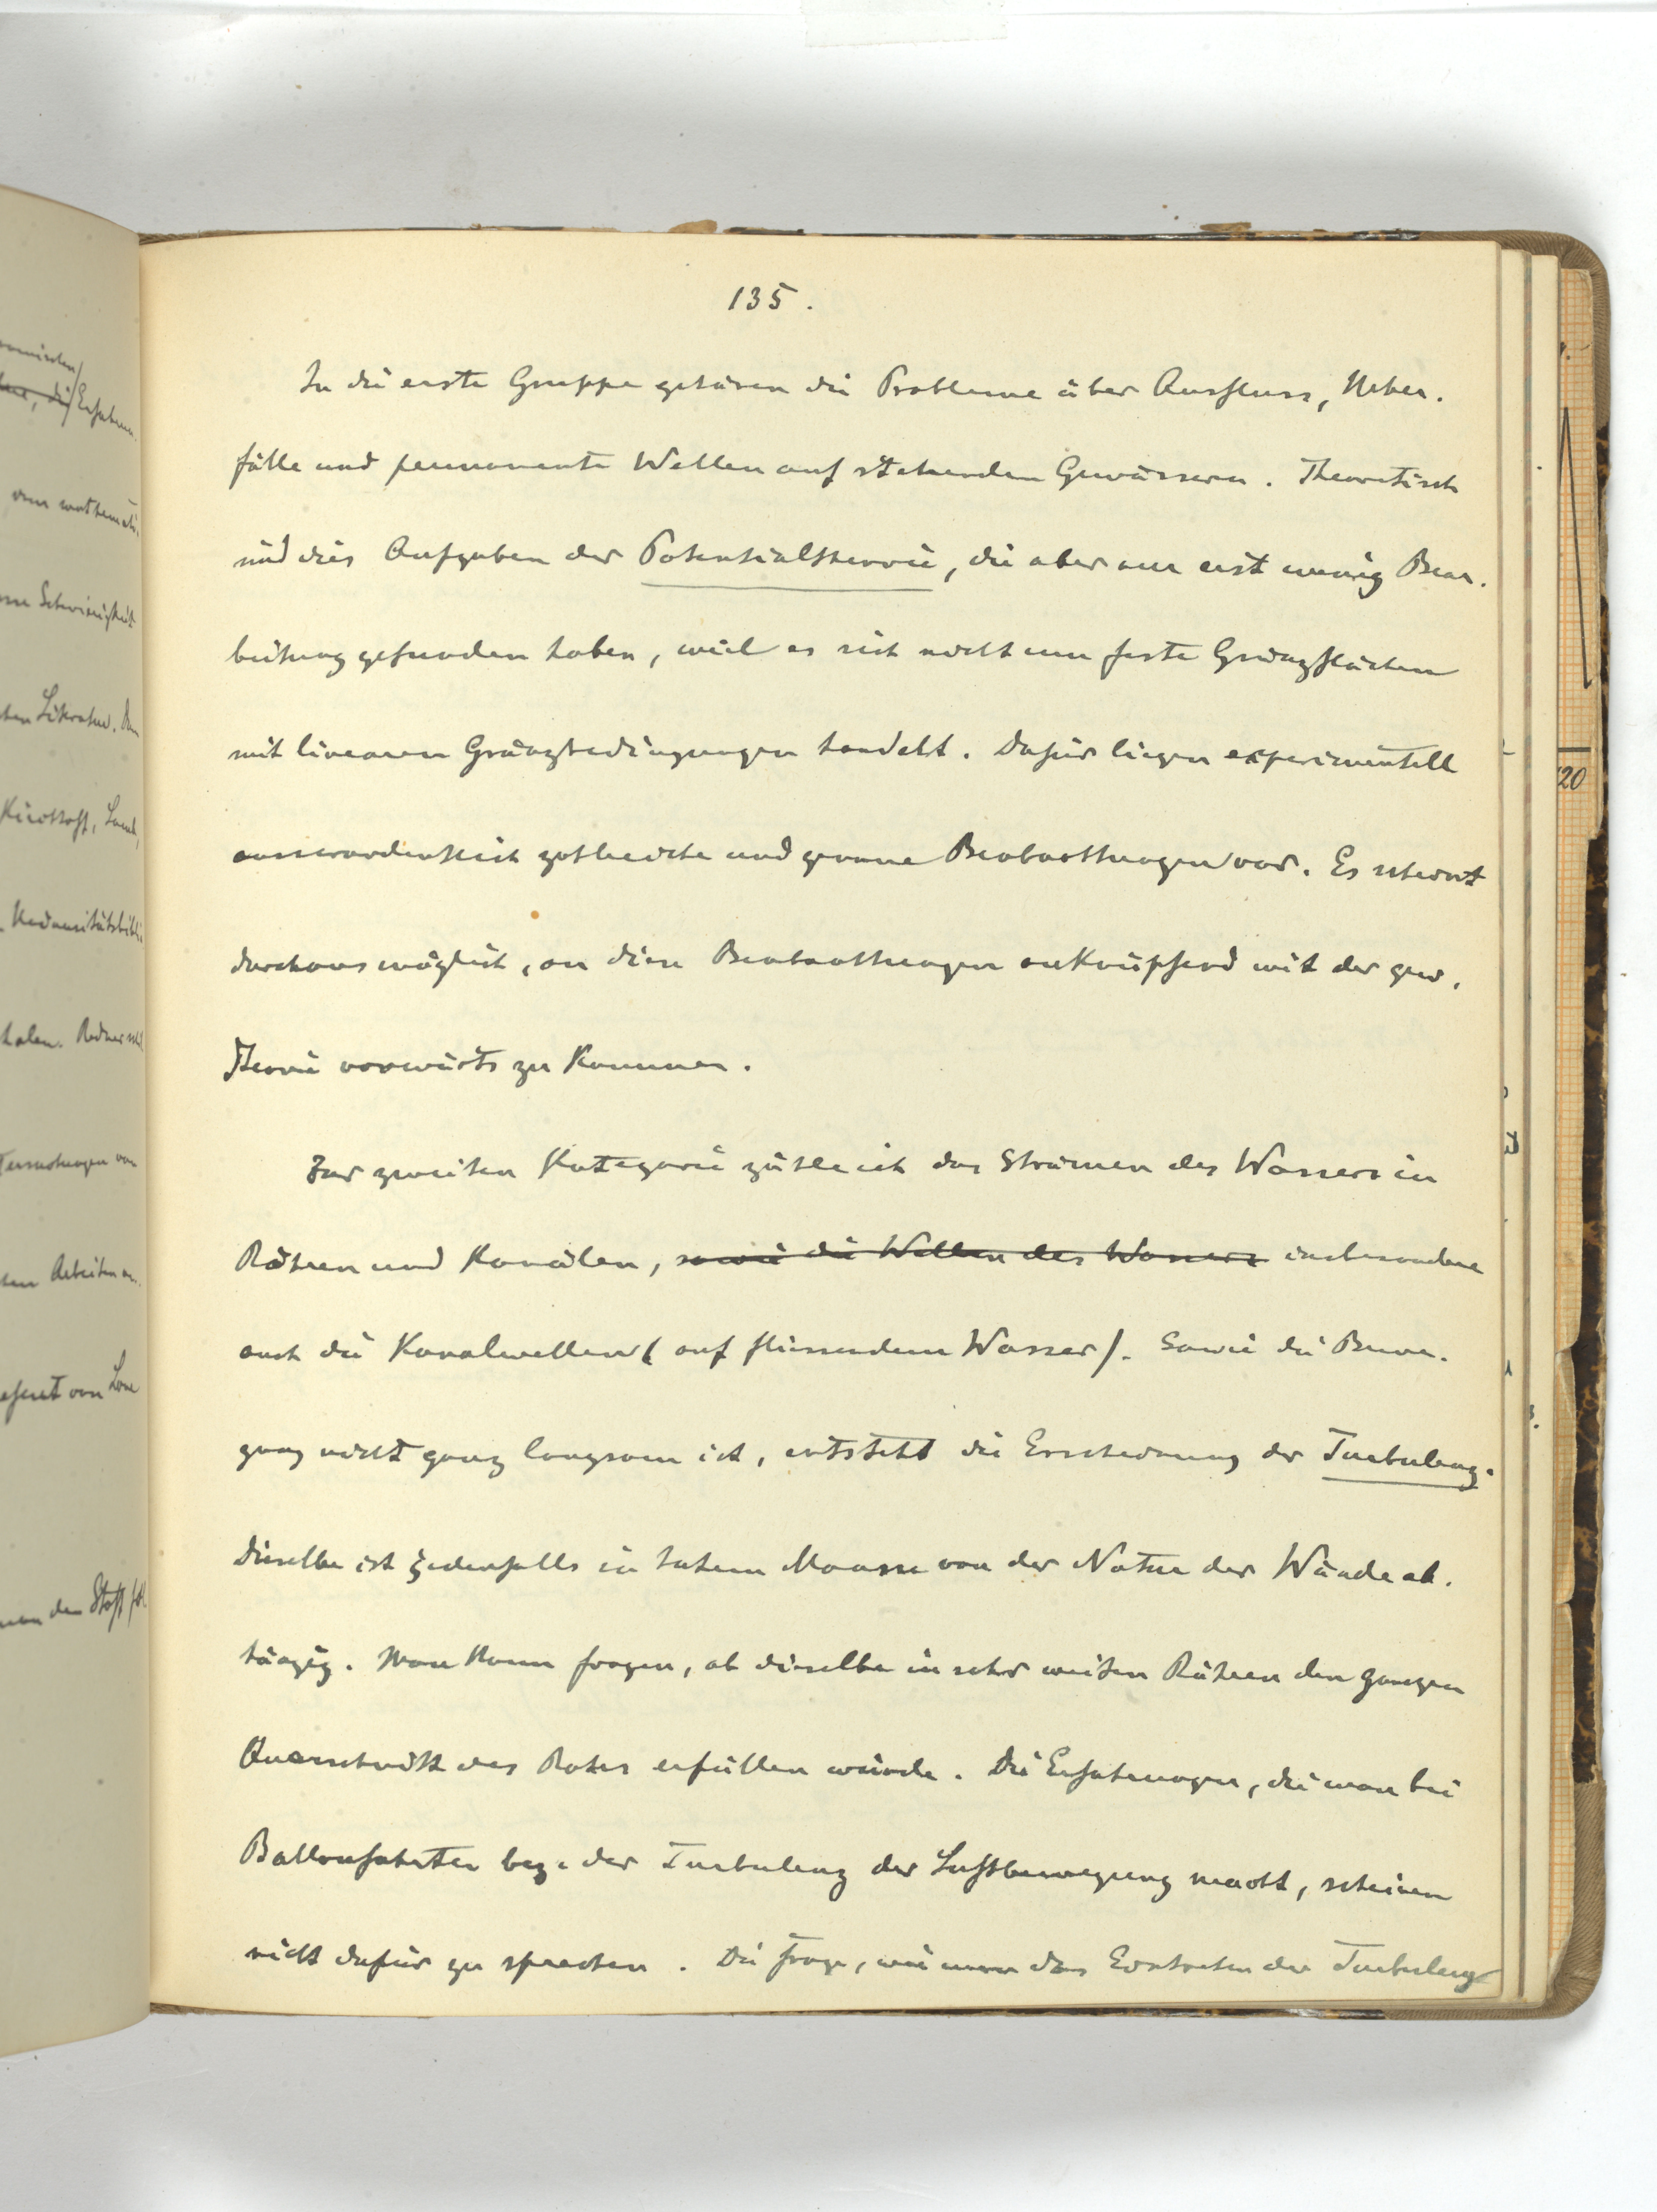 135.
In die erste Gruppe gehören die Probleme über Ausfluss, Ueber-
fälle und permanente Wellen auf stehenden Gewässern. Theoretisch
sind dies Aufgaben der Potentialtheorie, die aber nur erst wenig Bear-
beitung gefunden haben, weil es sich nicht um feste Gränzflächen
mit linearen Gränzbedingungen handelt. Dafür liegen experimentell
ausserordentlich zahlreiche und genaue Beobachtungen vor. Es scheint
durchaus möglich, an diese Beobachtungen anknüpfend mit der gew.
Theorie vorwärts zu kommen.
Zur zweiten Kategorie zähle ich das Strömen des Wassers in
Röhren und Kanälen, sowie die Wellen des Wassers insbesondere
auch die Kanalwellen (auf fliessendem Wasser). Sowie die Bewe-
gung nicht ganz langsam ist, entsteht die Erscheinung der Turbulenz.
Dieselbe ist jedenfalls in hohem Maasse von der Natur der Wände ab-
hängig. Man kann fragen, ob dieselbe in sehr weiten Röhren den ganzen
Querschnitt des Rohrs erfüllen würde. Die Erfahrungen, die man bei
Ballonfahrten bez. der Turbulenz der Luftbewegung macht, scheinen
nicht dafür zu sprechen. Die Frage, wie man das Eintreten der Turbulenz
20